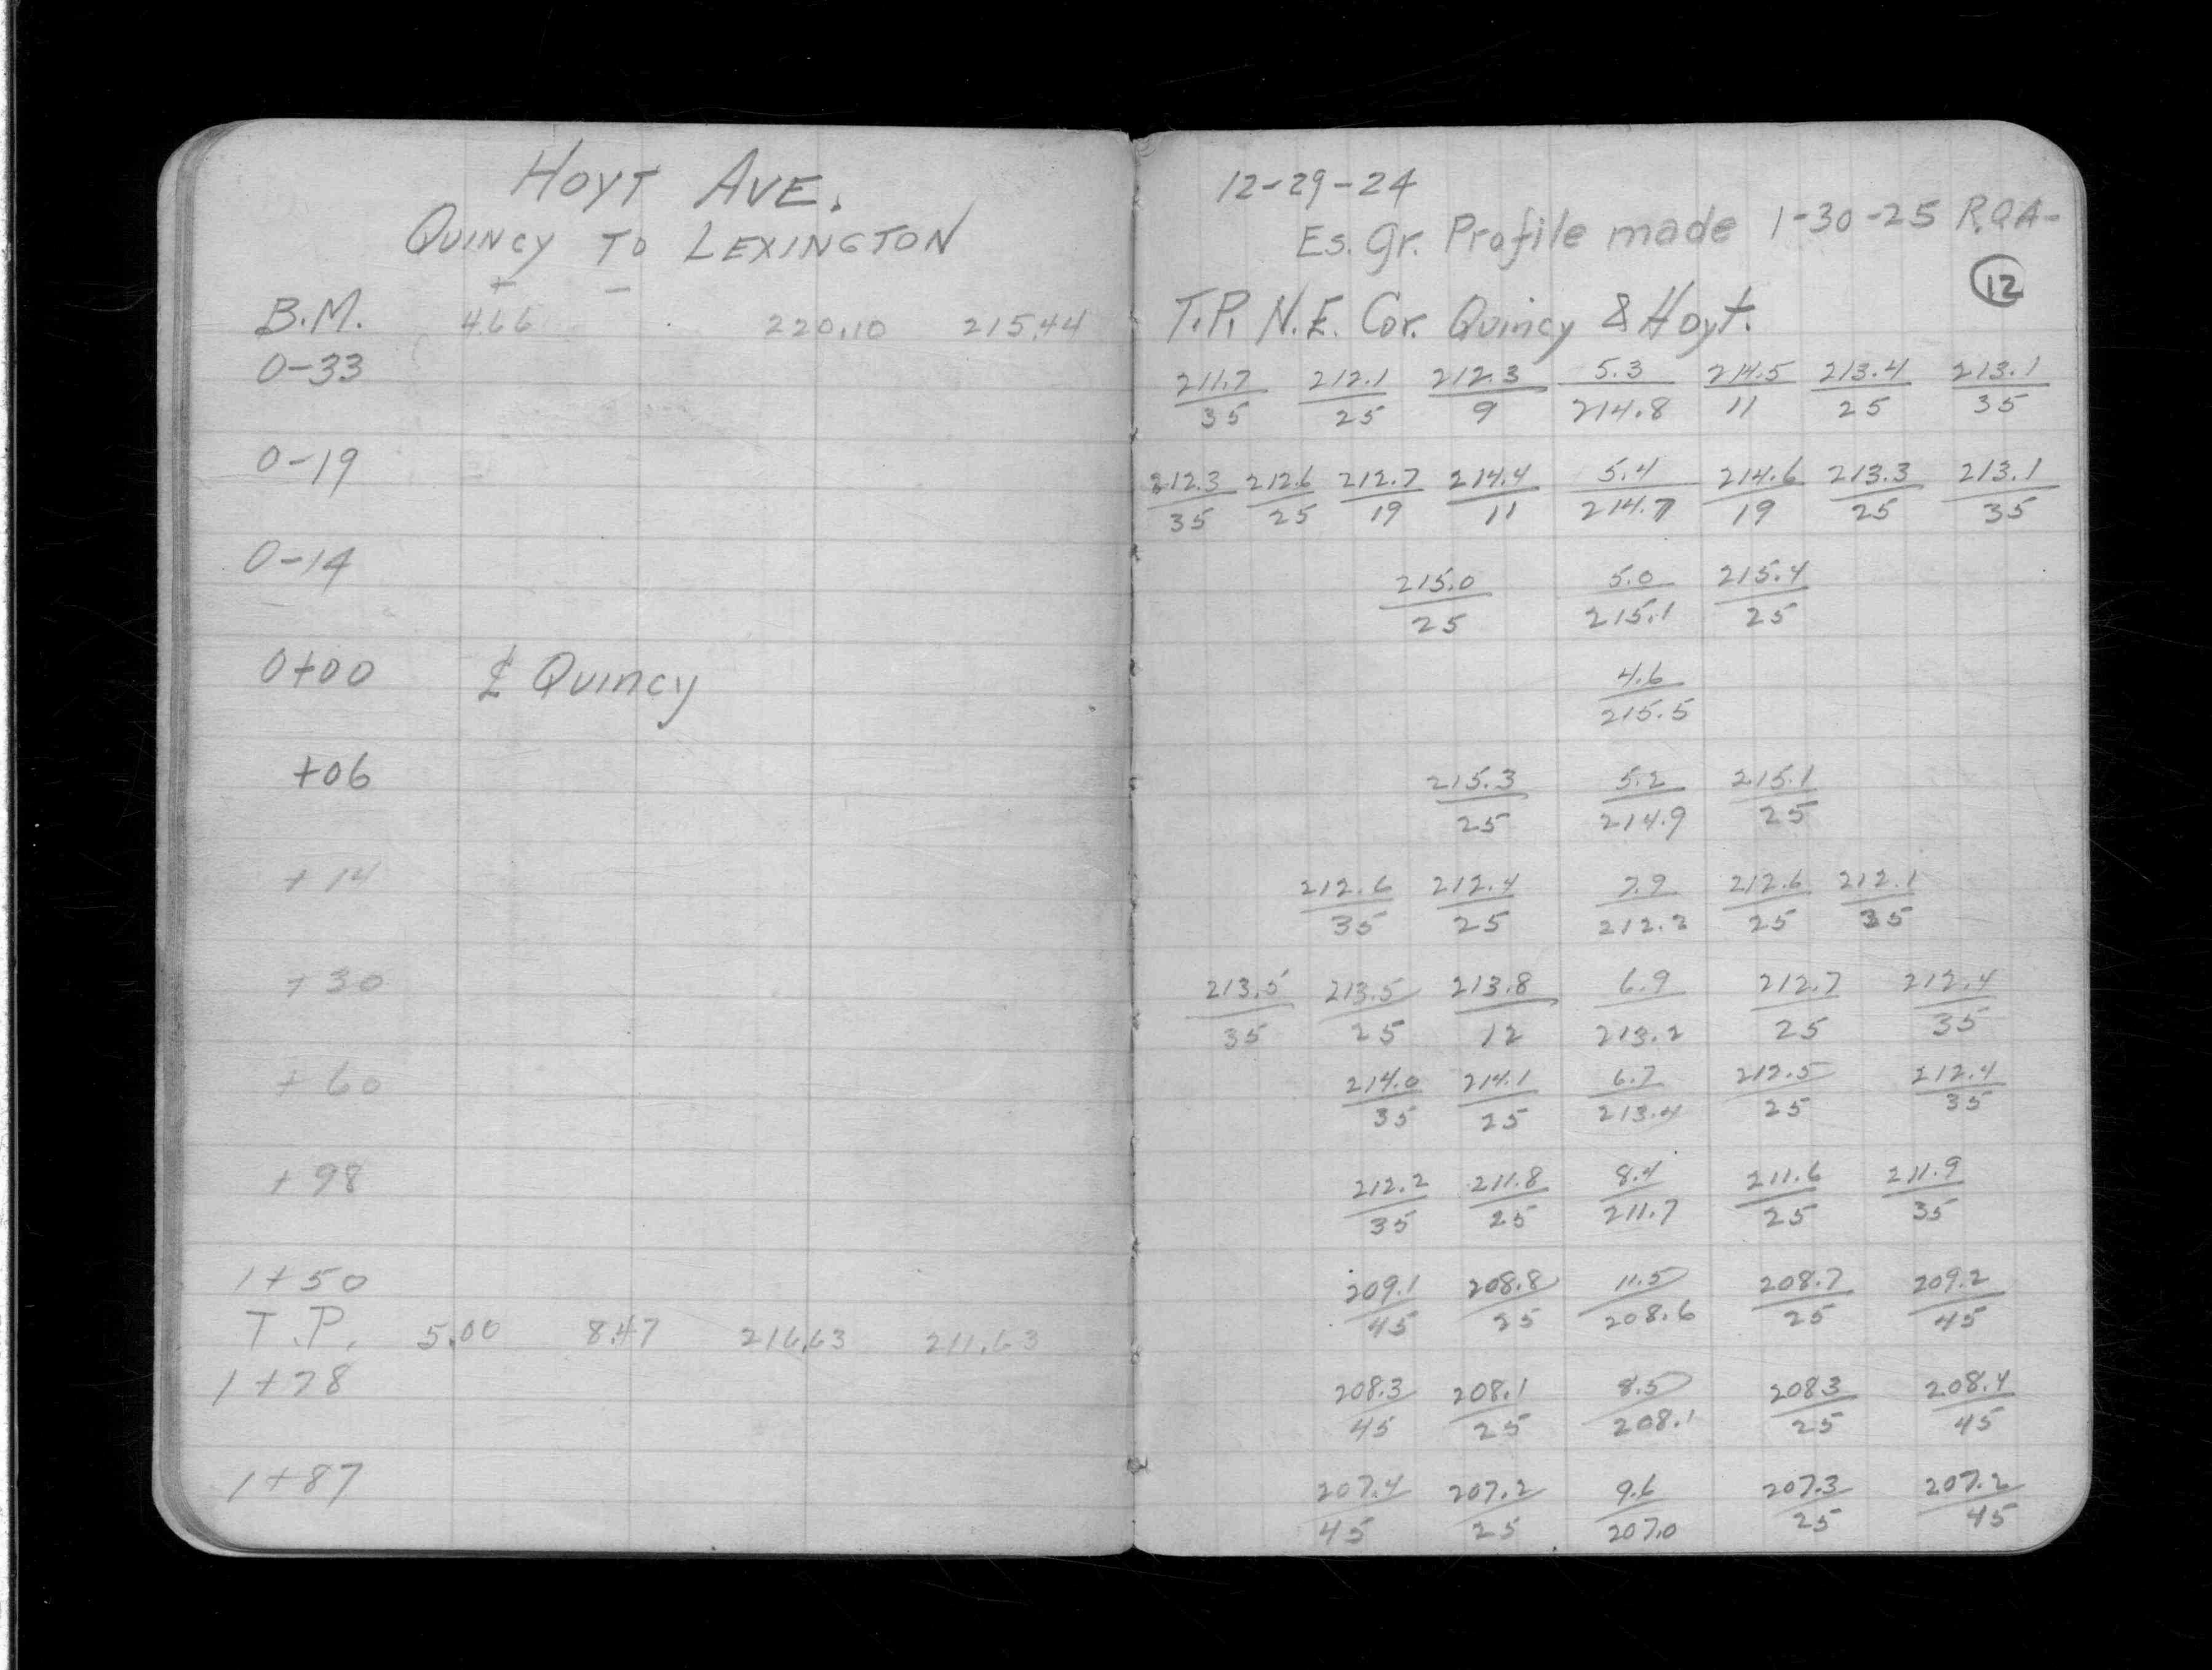 HOYT AVE.
QUINCY TO LEXINGTON
+ −
B.M. 4.66 220.10 215.44
0-33
0-19
0-14
0+00 ℄ Quincy
+06
+14
+30
+60
+98
1+50
T.P. 5.00 8.47 216.63 211.63
1+78
1+87
12-29-24
Es. Gr. Profile made 1-30-25 R.Q.A-
12
T.P. N.E. Cor. Quincy & Hoyt.
211.7 212.1 212.3 5.3 214.5 213.4 213.1
35 25 9 214.8 11 25 35
212.3 212.6 212.7 214.4 5.4 214.6 213.3 213.1
35 25 19 11 214.7 19 25 35
215.0 5.0 215.4
25 215.1 25
4.6
215.5
215.3 5.2 215.1
25 214.9 25
212.6 212.4 7.9 212.6 212.1
35 25 212.2 25 35
213.5 213.5 213.8 6.9 212.7 212.4
35 25 12 213.2 25 35
214.0 214.1 6.7 212.5 212.4
35 25 213.4 25 35
212.2 211.8 8.4 211.6 211.9
35 25 211.7 25 35
209.1 208.8 11.5 208.7 209.2
45 25 208.6 25 45
208.3 208.1 8.5 208.3 208.4
45 25 208.1 25 45
207.4 207.2 9.6 207.3 207.2
45 25 207.0 25 45